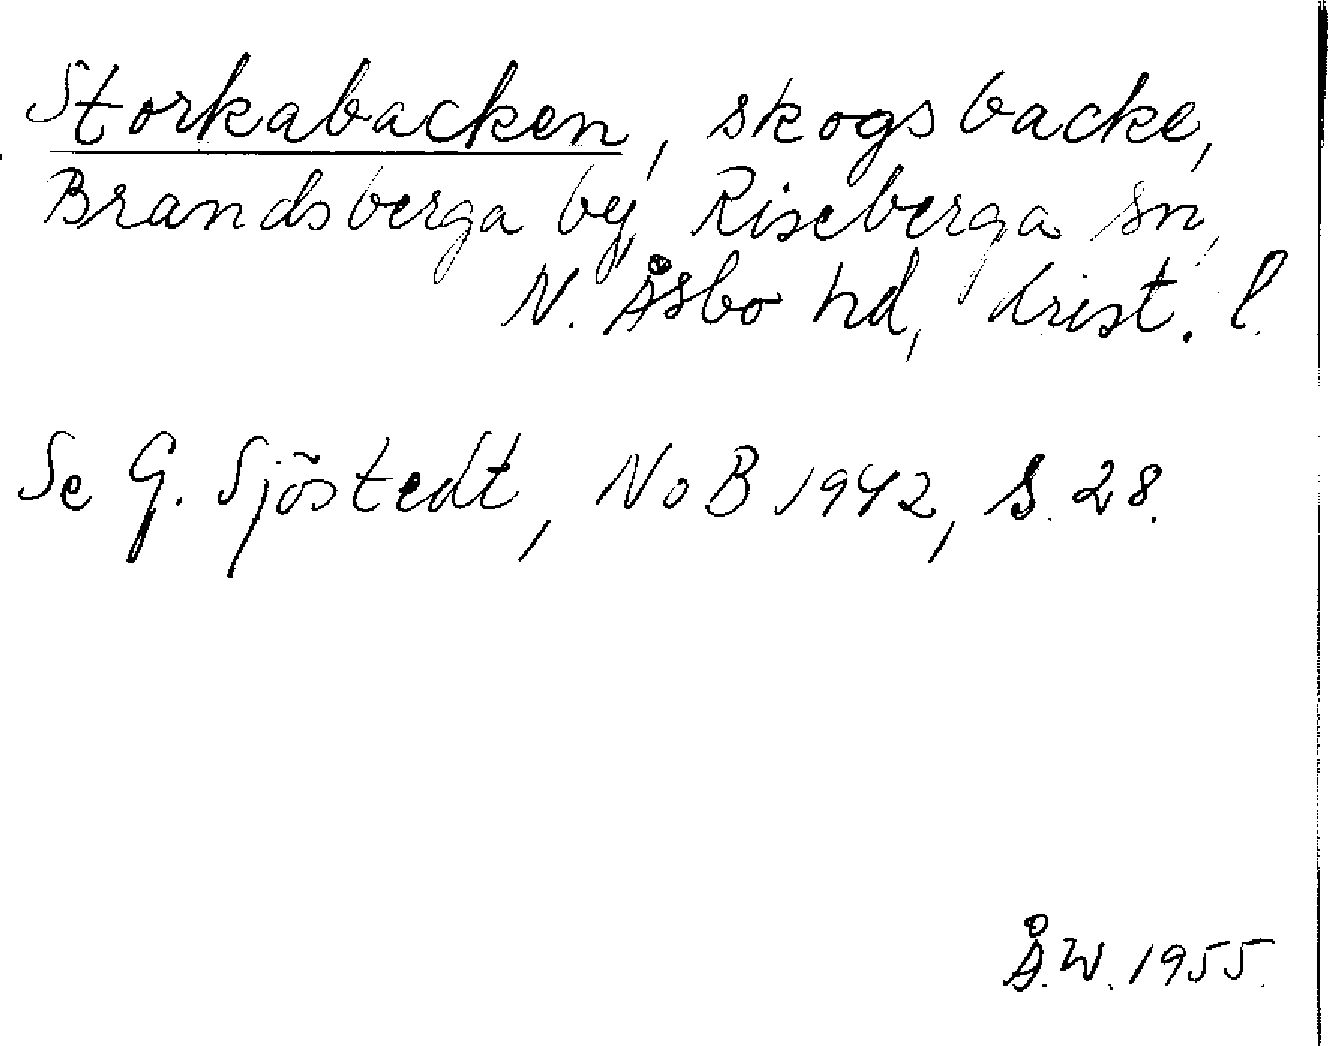 Storkabacken, skogsbacke,
Brandsberga by, Riseberga sn,
N. Åsbo hd, Krist. l.
Se G. Sjöstedt, NoB 1942, s. 28.
Å.W. 1955.